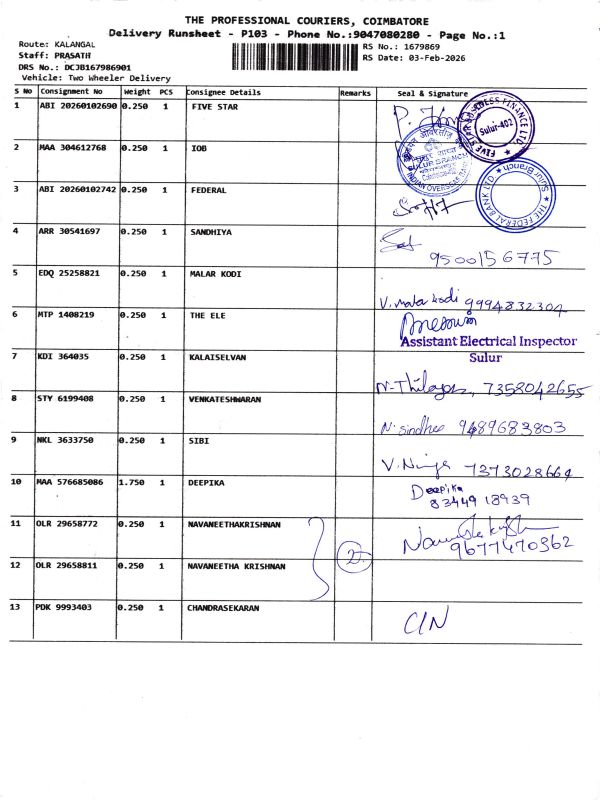 THE PROFESSIONAL COURIERS, COIMBATORE
Delivery Runsheet - P103 - Phone No.:9047080280 - Page No.:1
Route: KALANGAL
RS No.: 1679869
Staff: PRASATH
RS Date: 03-Feb-2026
DRS No.: DCJB167986901
Vehicle: Two Wheeler Delivery
S No Consignment No Weight PCS Consignee Details Remarks Seal & Signature
1 ABI 20260102690 0.250 1 FIVE STAR
FIVE STAR BUSINESS FINANCE LTD. Sulur-402
2 MAA 304612768 0.250 1 IOB
SULUR BRANCH
INDIAN OVERSEAS BANK
3 ABI 20260102742 0.250 1 FEDERAL
THE FEDERAL BANK LTD. Sulur Branch
4 ARR 30541697 0.250 1 SANDHIYA
9500156775
5 EDQ 25258821 0.250 1 MALAR KODI
V. malar kodi 9994832304
6 MTP 1408219 0.250 1 THE ELE
Assistant Electrical Inspector
Sulur
7 KDI 364035 0.250 1 KALAISELVAN
7358042655
8 STY 6199408 0.250 1 VENKATESHWARAN
N. sindhu 9489683803
9 NKL 3633750 0.250 1 SIBI
7373028664
10 MAA 576685086 1.750 1 DEEPIKA
Deepika
83449 18939
11 OLR 29658772 0.250 1 NAVANEETHAKRISHNAN
9677470362
12 OLR 29658811 0.250 1 NAVANEETHA KRISHNAN 2
13 PDK 9993403 0.250 1 CHANDRASEKARAN
C/N